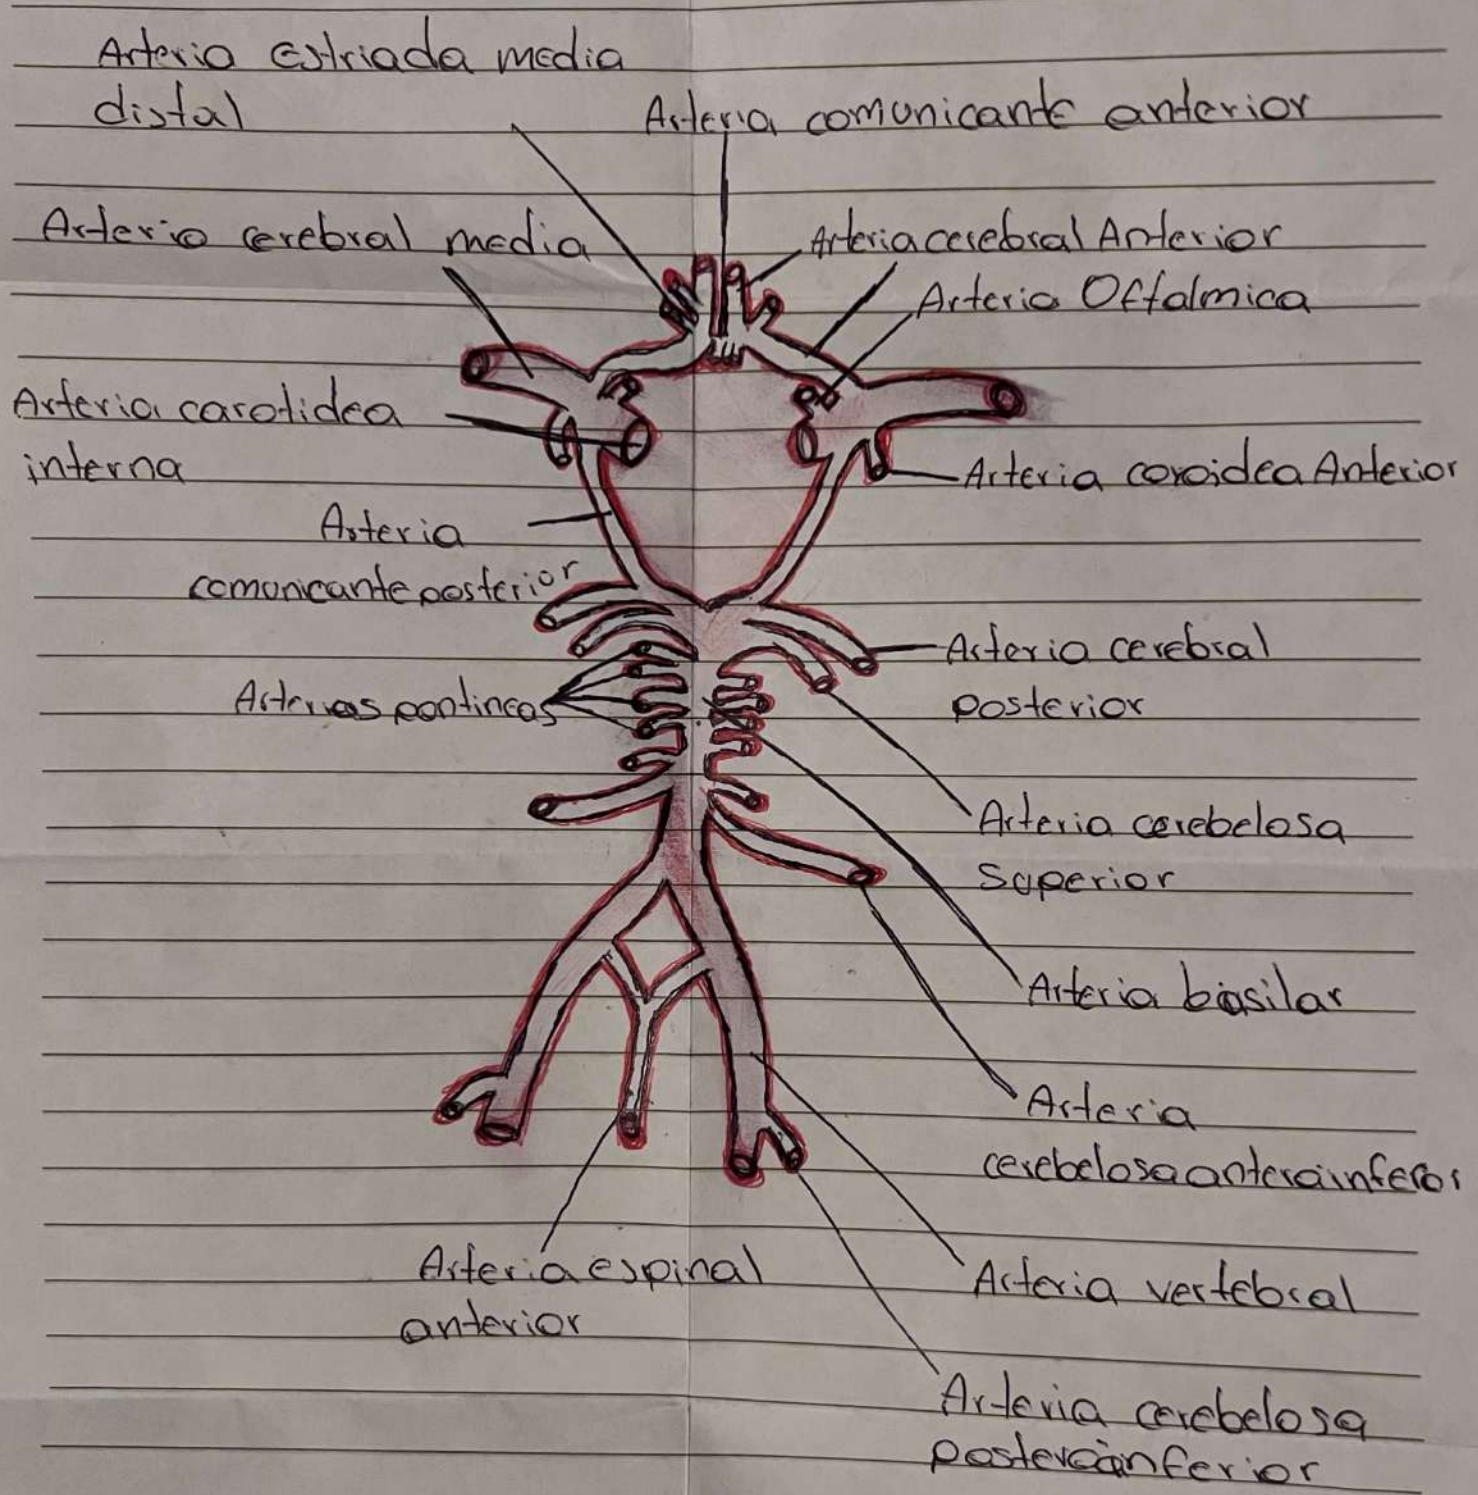 Arteria estriada media
distal
Arteria comunicante anterior
Arteria cerebral media
Arteria cerebral Anterior
Arteria Oftalmica
Arteria carotidea
interna
Arteria coroidea Anterior
Arteria
comunicante posterior
Arteria cerebral
posterior
Arterias pontineas
Arteria cerebelosa
Superior
Arteria basilar
Arteria
cerebelosa anteroinferor
Arteria espinal
anterior
Arteria vertebral
Arteria cerebelosa
posteroinferior